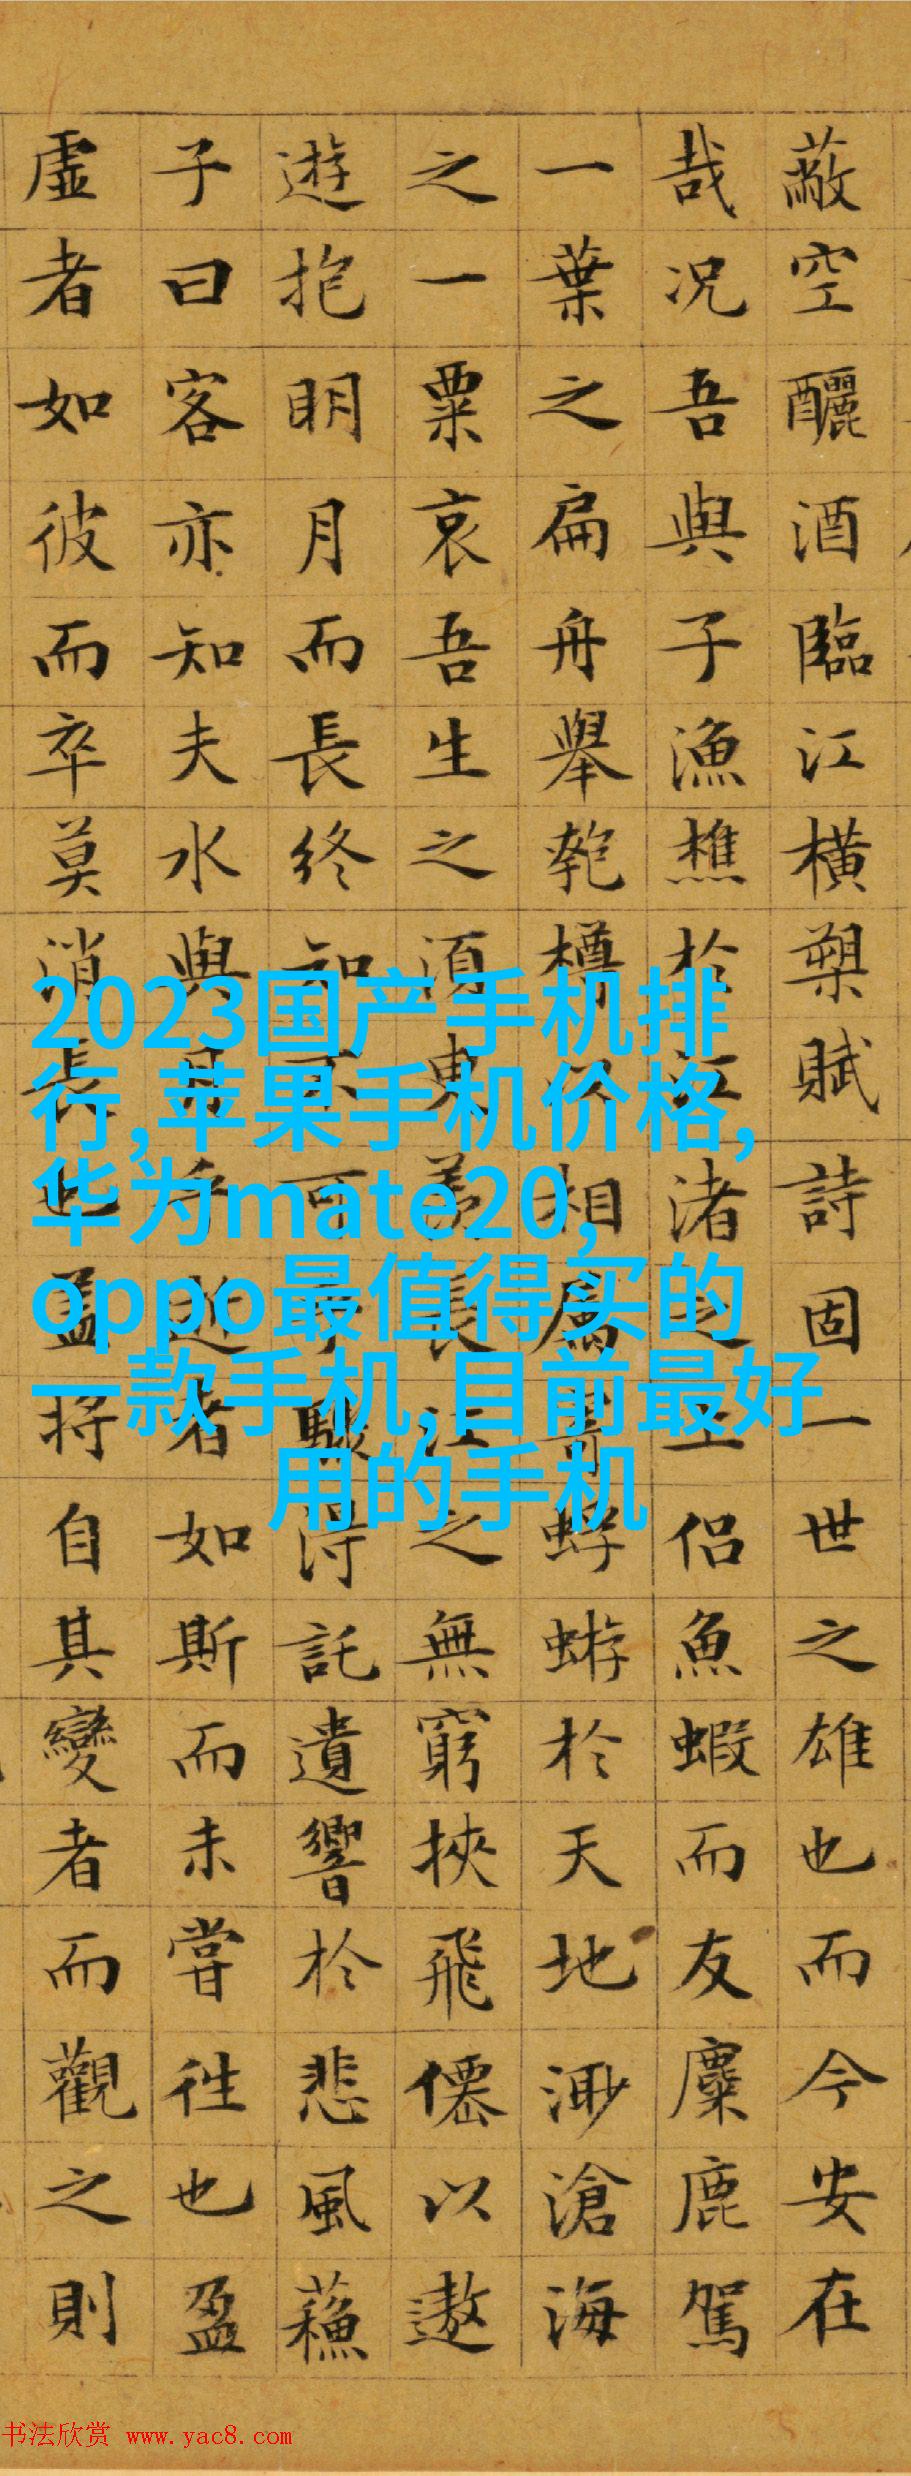 蔽空釃酒臨江橫槊賦詩固一世之雄也而今安在
哉况吾與子漁樵於江渚之上侶魚蝦而友麋鹿駕
一葉之扁舟舉匏樽以相屬寄蜉蝣於天地渺滄海
之一粟哀吾生之須臾羨長江之無窮挾飛僊以遨
遊抱明月而長終知不可乎驟得託遺響於悲風蘓
子曰客亦知夫水與月乎逝者如斯而未嘗往也盈
虛者如彼而卒莫消長也蓋將自其變者而觀之則
2023国产手机排
行,苹果手机价格,
华为mate20,
oppo最值得买的
一款手机,目前最好
用的手机
书法欣赏 www.yac8.com